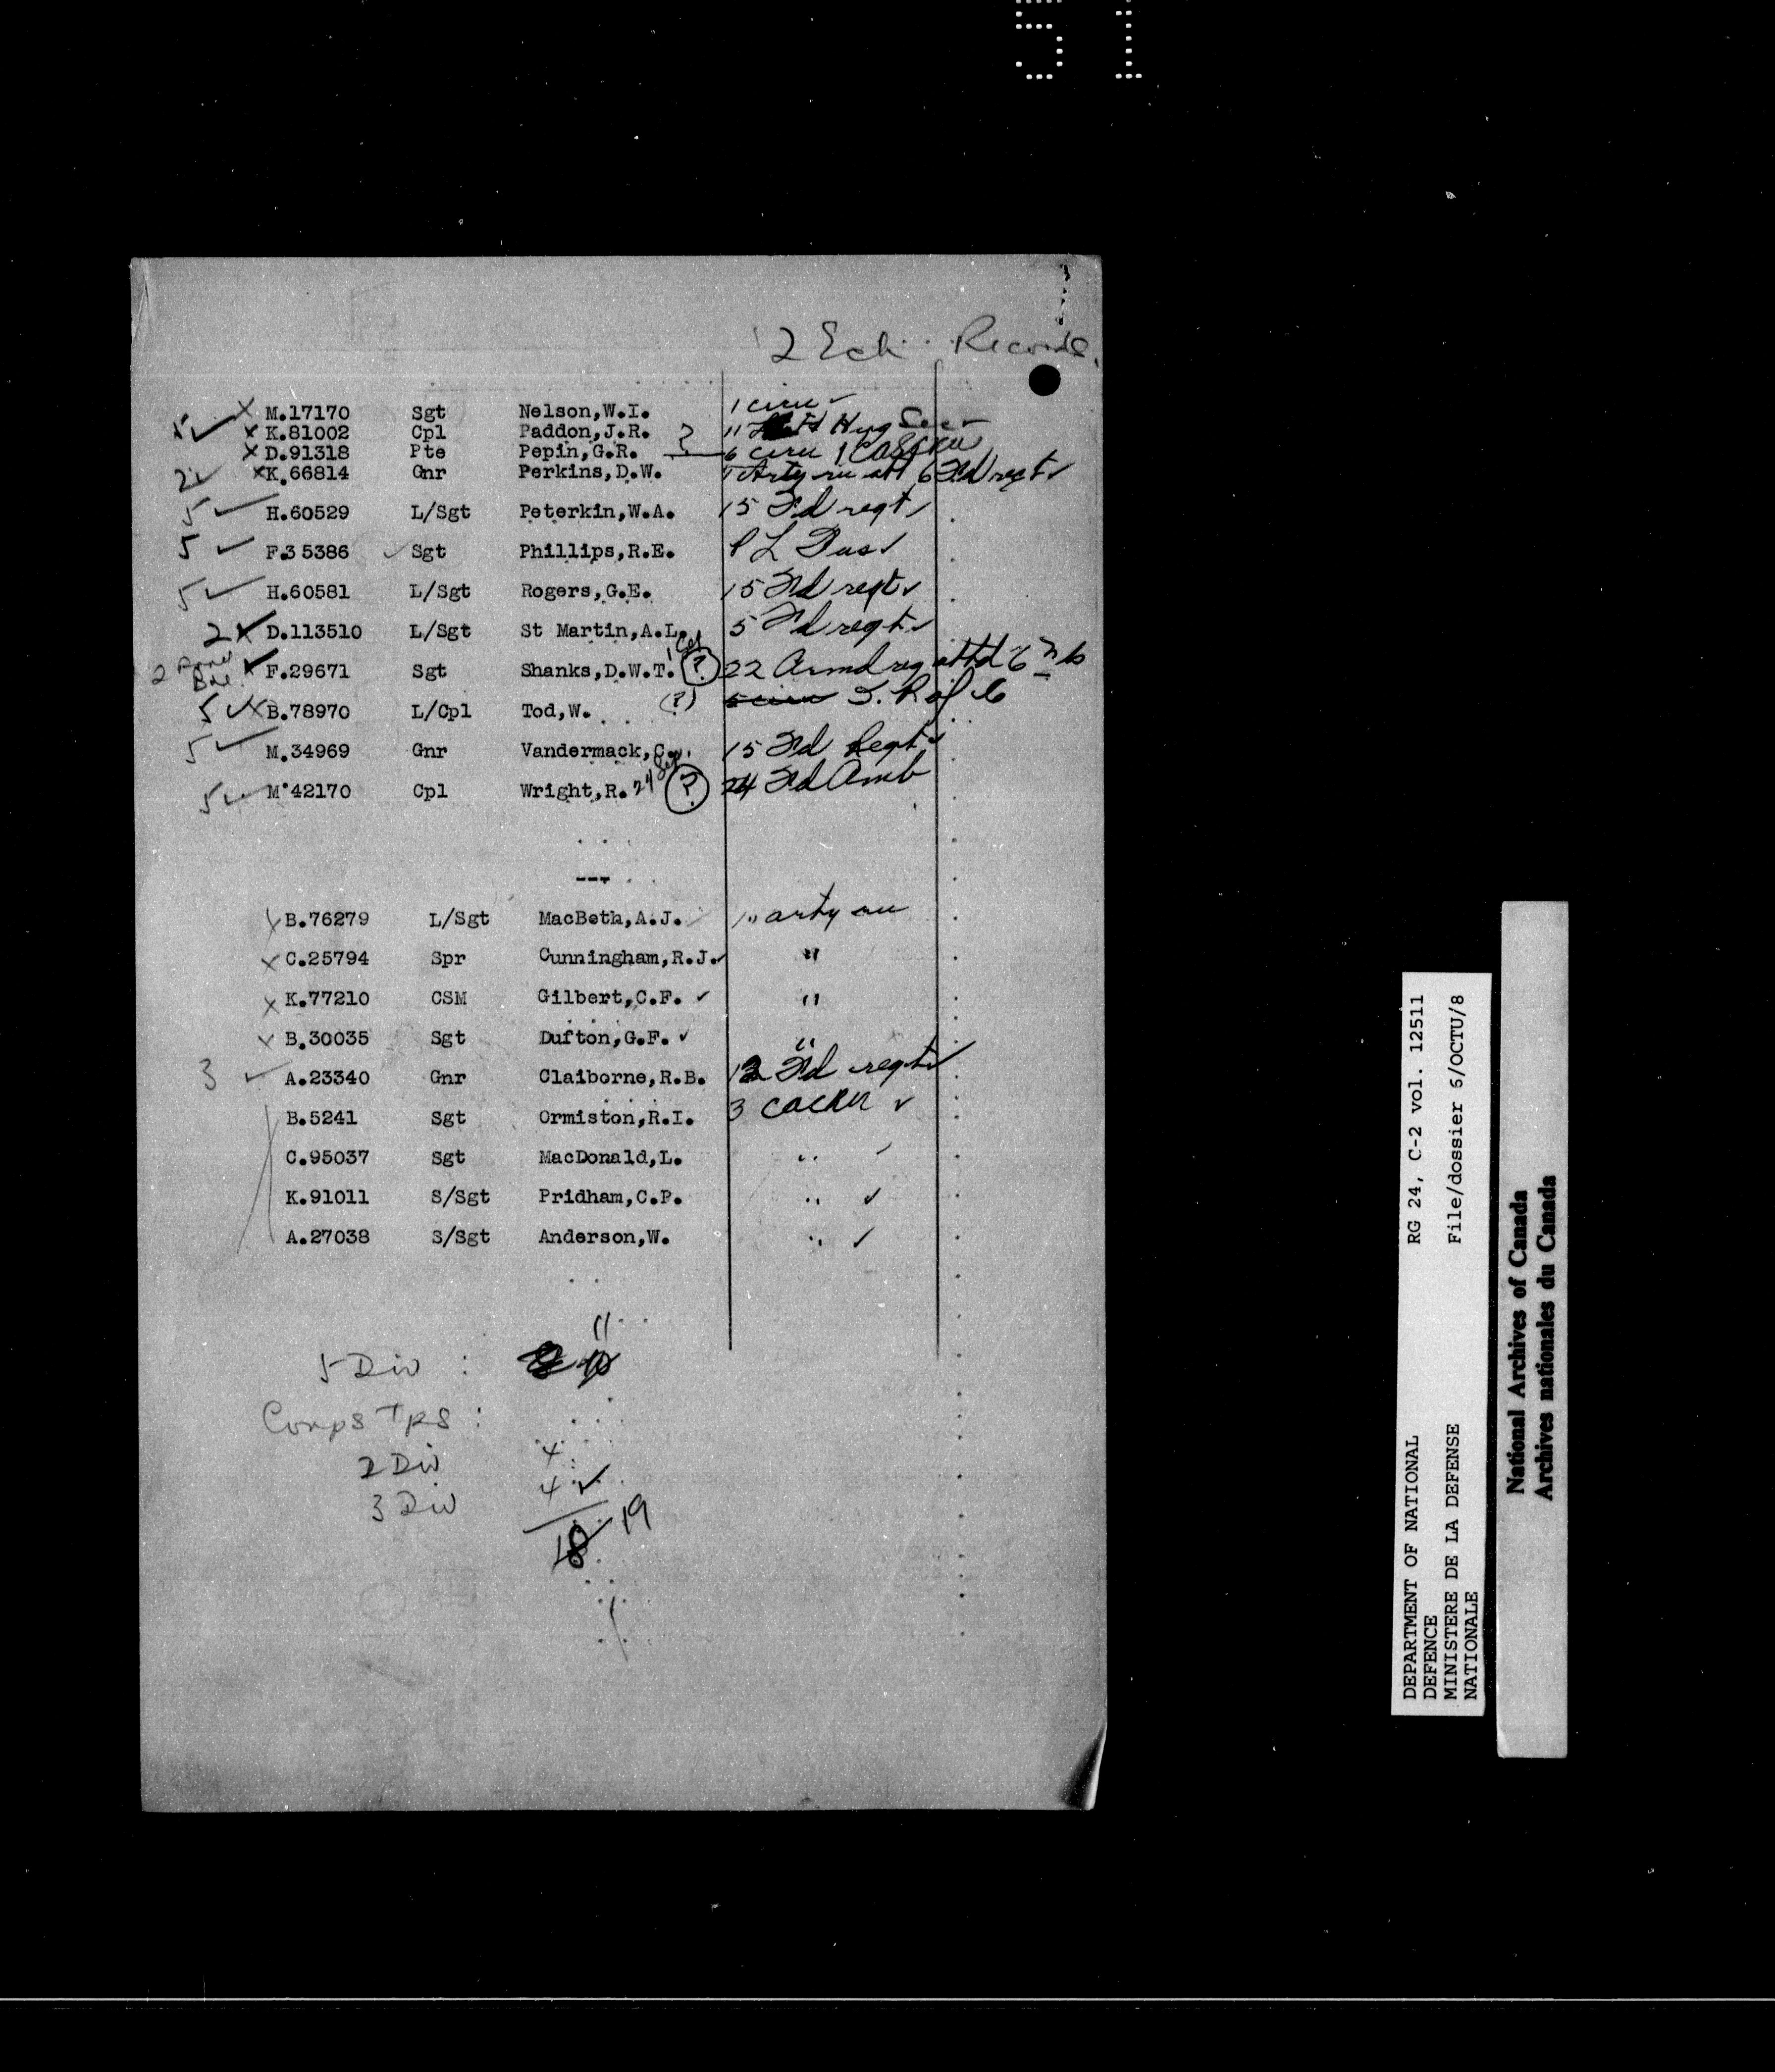 51
2 Ech. Records.
M.17170 Sgt Nelson,W.I. 1 ciru
5 K.81002 Cpl Paddon,J.R. 11 Hyg Sec
D.91318 Pte Pepin,G.R. 6 ciru 1 CASCRU
2 K.66814 Gnr Perkins,D.W. 1 Arty ru att 6 Fd regt
5 H.60529 L/Sgt Peterkin,W.A. 15 Fd regt
5 F.35386 Sgt Phillips,R.E. P L Fus
5 H.60581 L/Sgt Rogers,G.E. 15 Fd regt
2 D.113510 L/Sgt St Martin,A.L. 5 Fd regt
2 F.29671 Sgt Shanks,D.W.T. (?) 22 Armd reg attd
5 B.78970 L/Cpl Tod,W. (?) 5 ciru I. R of C
5 M.34969 Gnr Vandermack,C. 15 Fd Regt
5 M.42170 Cpl Wright,R. 24 (?) 24 Fd Amb
---
B.76279 L/Sgt MacBeth,A.J. 1 arty ru
C.25794 Spr Cunningham,R.J. "
K.77210 CSM Gilbert,C.F. "
B.30035 Sgt Dufton,G.F. "
3 A.23340 Gnr Claiborne,R.B. 12 Fd regt
B.5241 Sgt Ormiston,R.I. 3 CACRU
C.95037 Sgt MacDonald,L. "
K.91011 S/Sgt Pridham,C.P. "
A.27038 S/Sgt Anderson,W. "
11
5 Div :
Corps Tps :
2 Div 4
3 Div 4
18 19
DEPARTMENT OF NATIONAL RG 24, C-2 vol. 12511
DEFENCE
MINISTERE DE LA DEFENSE File/dossier 6/OCTU/8
NATIONALE
National Archives of Canada
Archives nationales du Canada